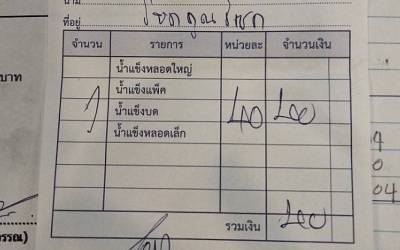 นาม
ที่อยู่ โชคคูณโชค
จำนวน รายการ หน่วยละ จำนวนเงิน
น้ำแข็งหลอดใหญ่
น้ำแข็งแพ็ค
1 น้ำแข็งบด 40
น้ำแข็งหลอดเล็ก
รวมเงิน
บาท
04